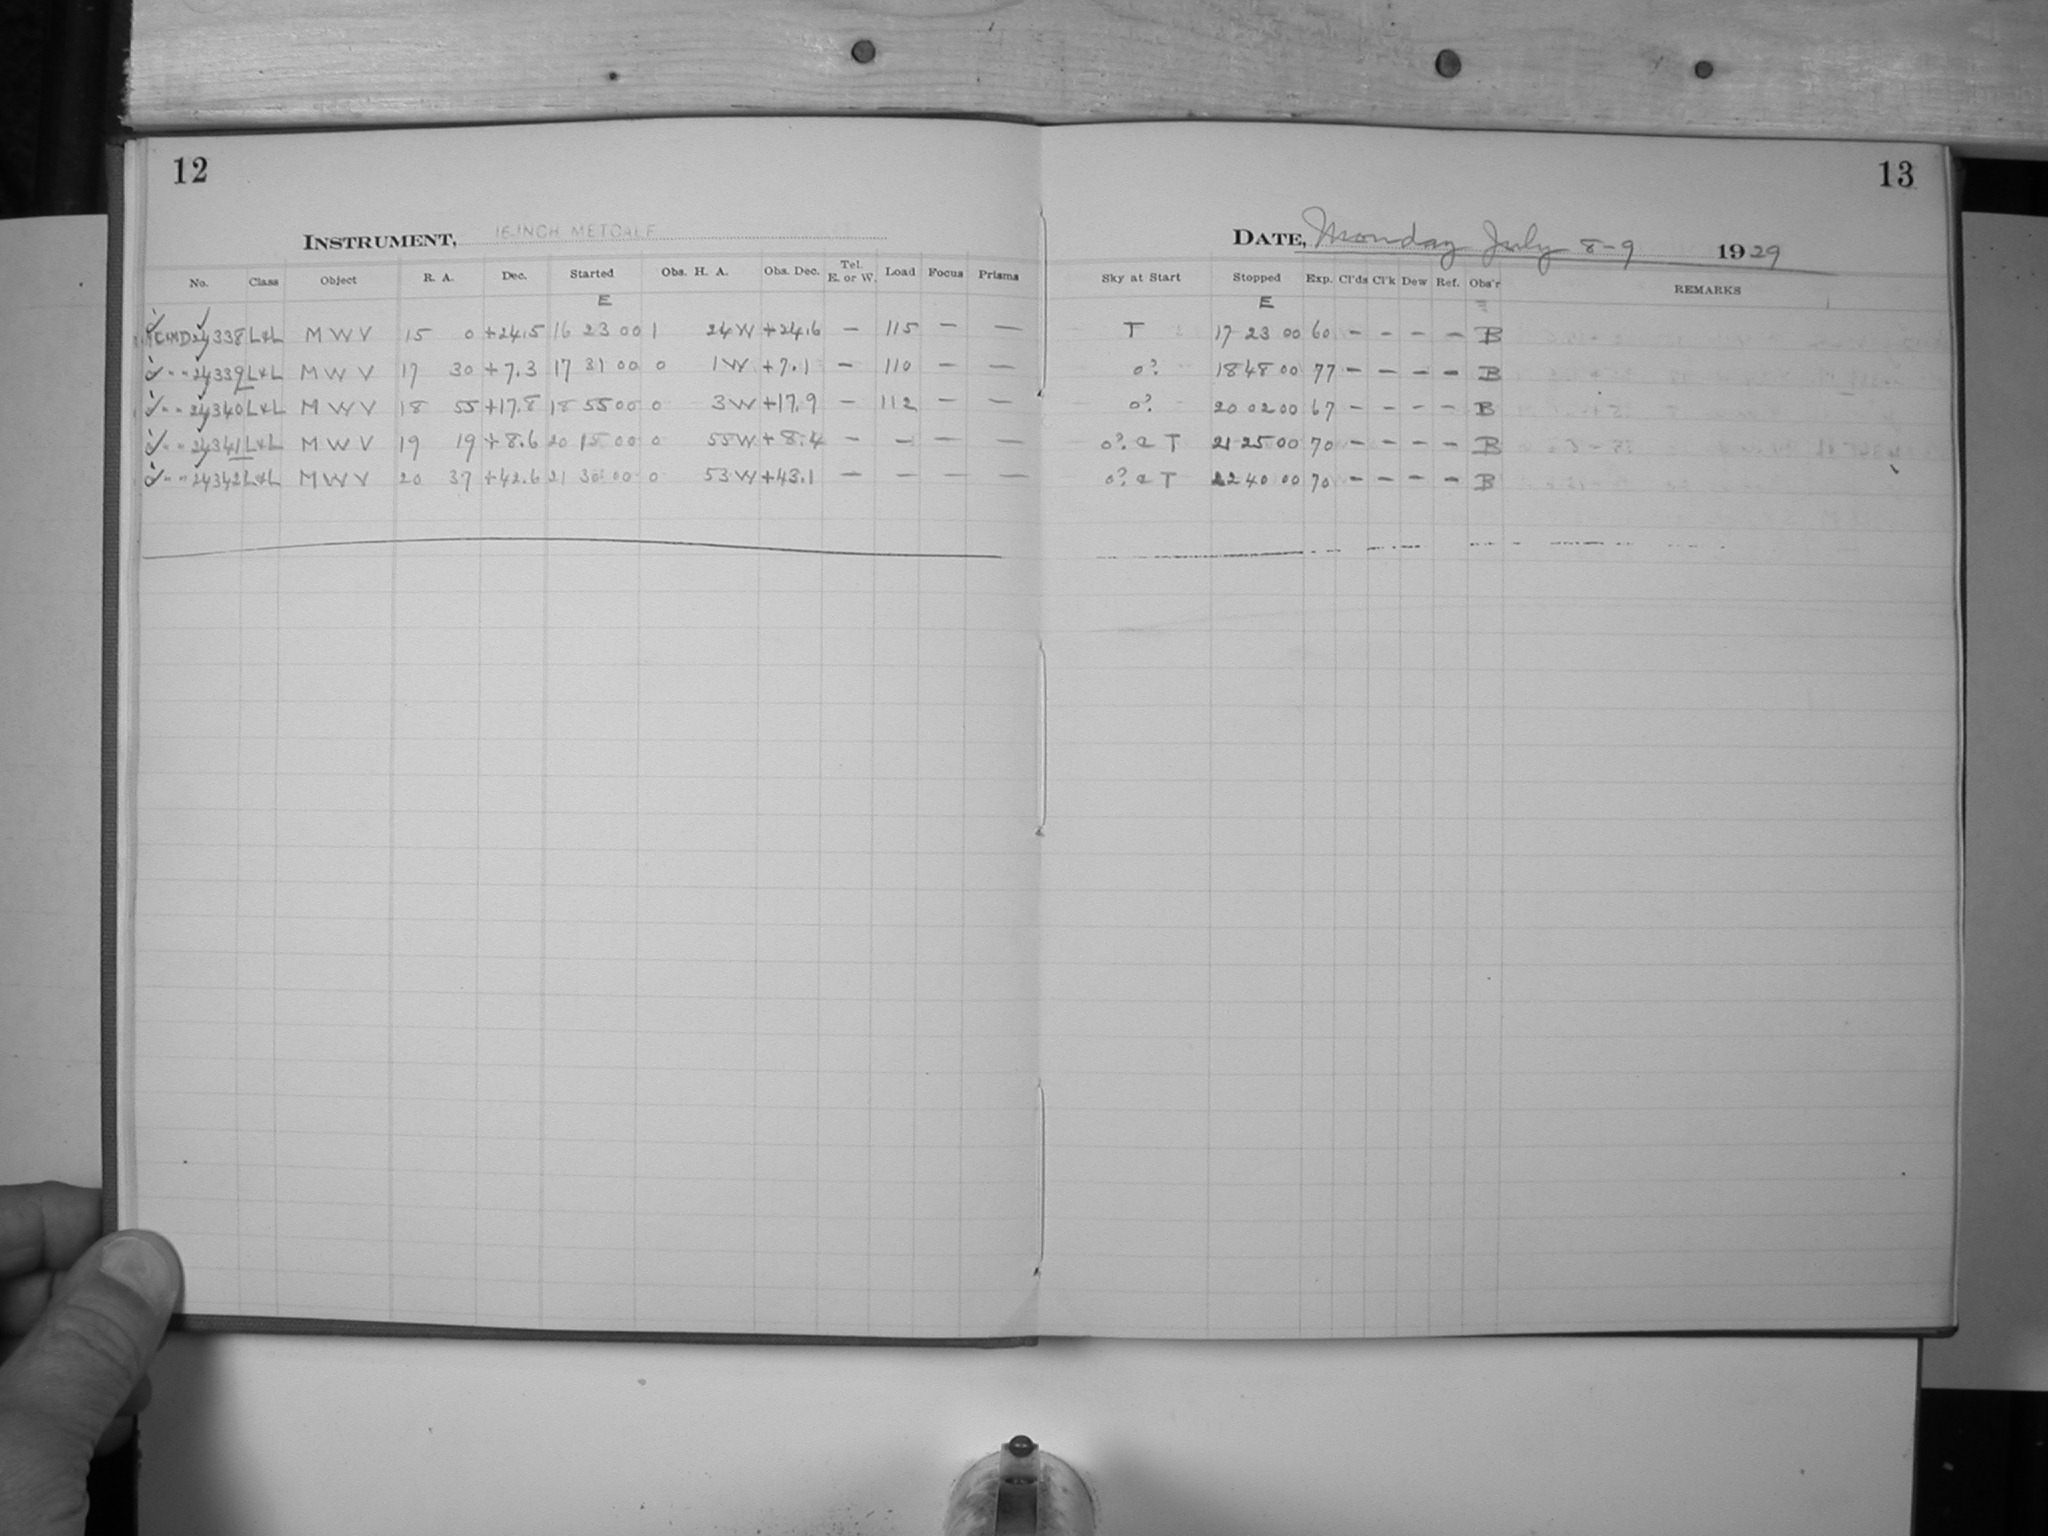 12
INSTRUMENT, 16-INCH METCALF
No. Class Object R. A. Dec. Started Obs. H. A. Obs. Dec. Tel. E. or W. Load Focus Prisms
E
24338 L&L M W V 15 0 +24.5 16 23 00 1 24 W +24.6 – 115 – –
" " 24339 L&L M W V 17 30 +7.3 17 31 00 0 1 W +7.1 – 110 – –
" " 24340 L&L M W V 18 55 +17.8 18 55 00 0 3 W +17.9 – 112 – –
" " 24341 L&L M W V 19 19 +8.6 20 15 00 0 55 W +8.4 – – – –
" " 24342 L&L M W V 20 37 +42.6 21 30 00 0 53 W +43.1 – – – –
13
DATE, Monday July 8-9 1929
Sky at Start Stopped Exp. Cl'ds Cl'k Dew Ref. Obs'r REMARKS
E
T 17 23 00 60 – – – – B
0? 18 48 00 77 – – – – B
0? 20 02 00 67 – – – – B
0? T 21 25 00 70 – – – – B
0? T 22 40 00 70 – – – – B